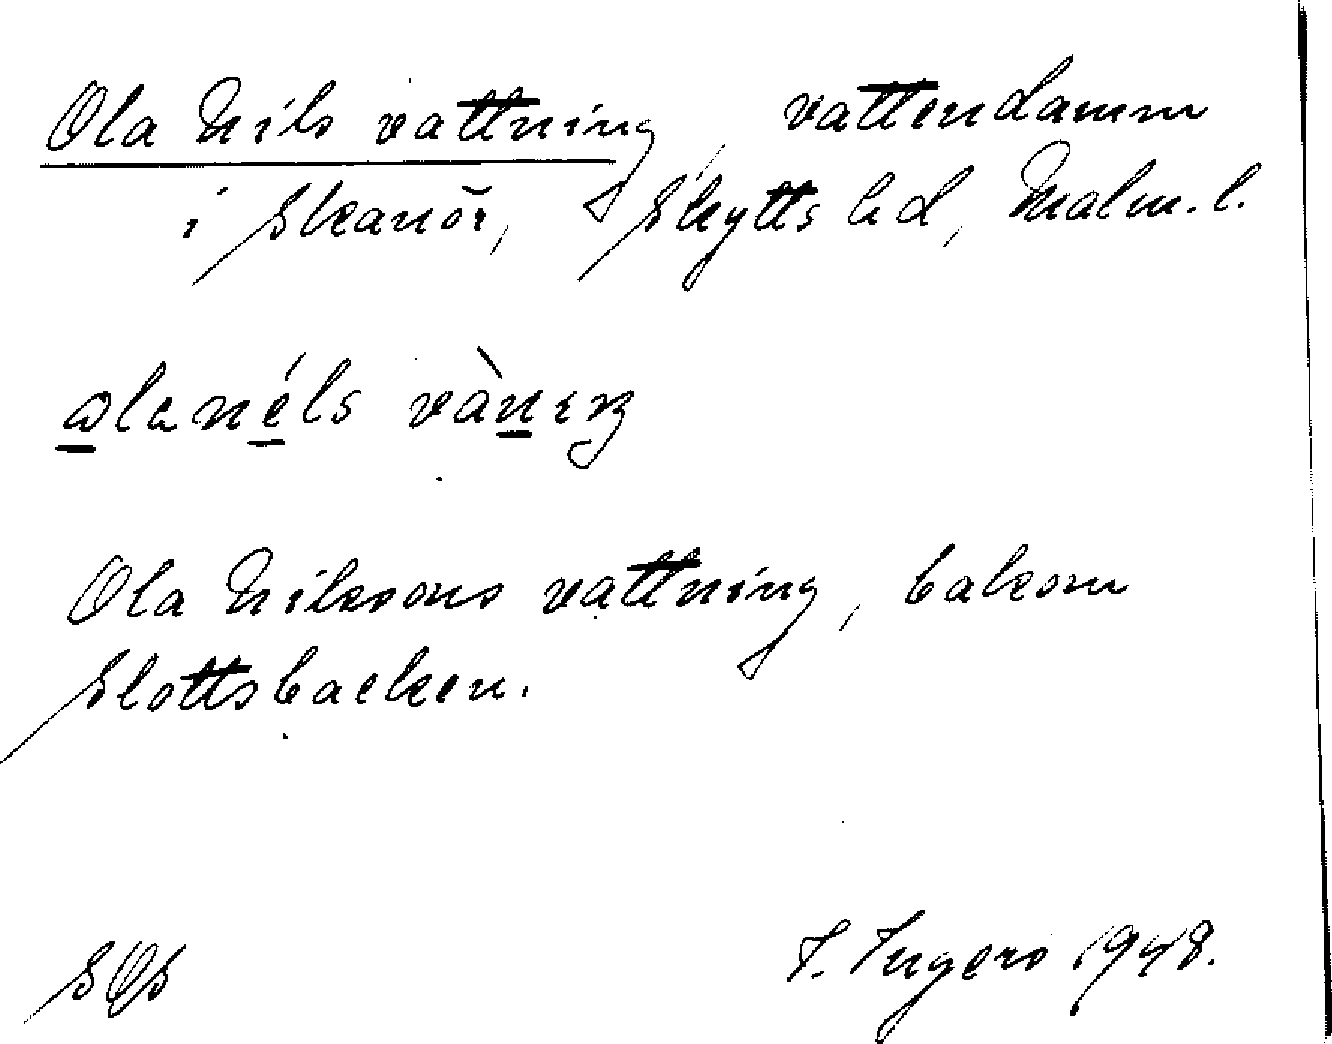 Ola Nils vattning, vattendamm
i Skanör, Skytts hd, Malm. l.
ɷlanéls vàniŋ
Ola Nilssons vattning, bakom
Slottsbacken.
SOS
I. Ingers 1948.